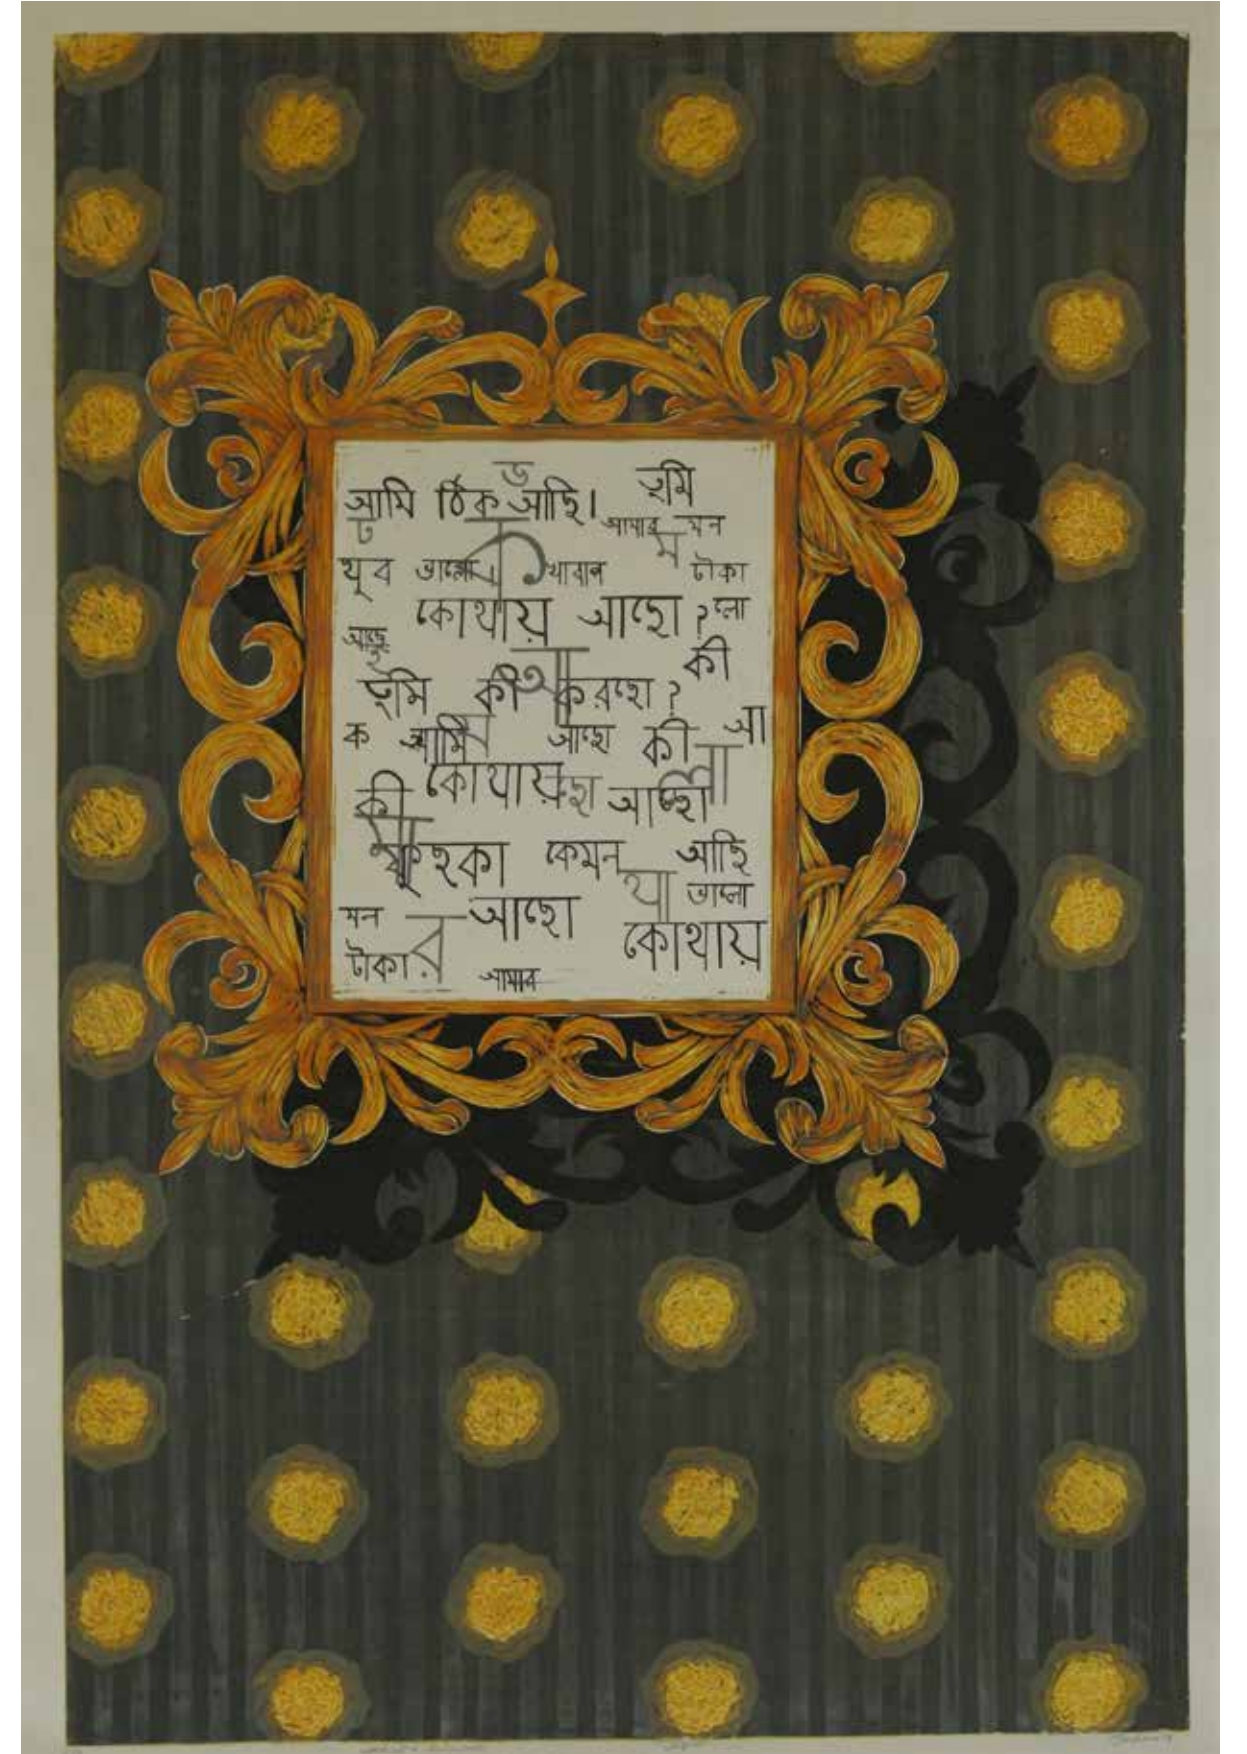 ড
আমি ঠিক আছি। তুমি
ঢ আমার মন
খুব ভালো খারাপ ম টাকা
কোথায় আছো ? লো
তুমি কী করছো ? কী
ক আমি আছো কী আ
কোথায় ছো আছো লা
কী
কেমন আছি
মন আছো খা ভালো
টাকা র আমার কোথায়